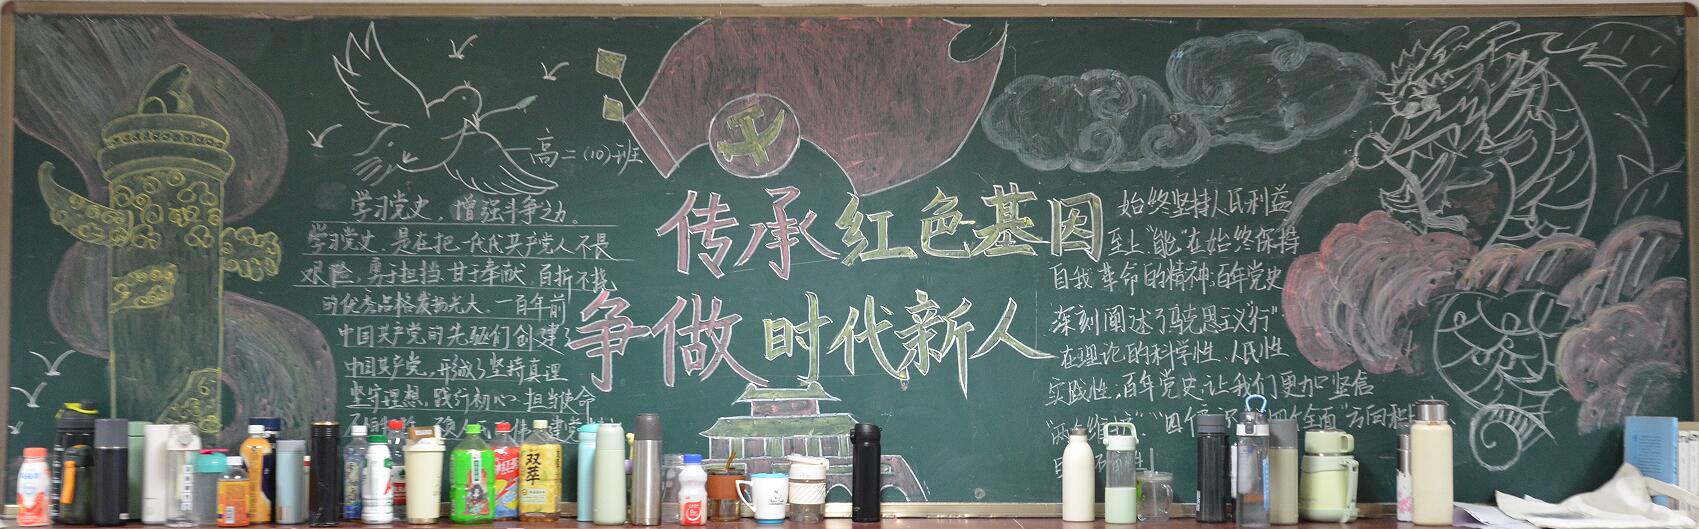 高二(10)班
学习党史，增强斗争之力。
学习党史，是在把一代代共产党人不畏
艰险，勇于担当，甘于奉献，百折不挠
的优秀品格发扬光大。一百年前
中国共产党的先驱们创建了
中国共产党，形成了坚持真理
坚守理想，践行初心、担当使命
传承红色基因
争做时代新人
始终坚持人民利益
至上"能"在始终保持
自我革命的精神；百年党史
深刻阐述了马克思主义"行"
在理论的科学性、人民性
实践性；百年党史，让我们更加坚信
四个全面"方向和
双萃